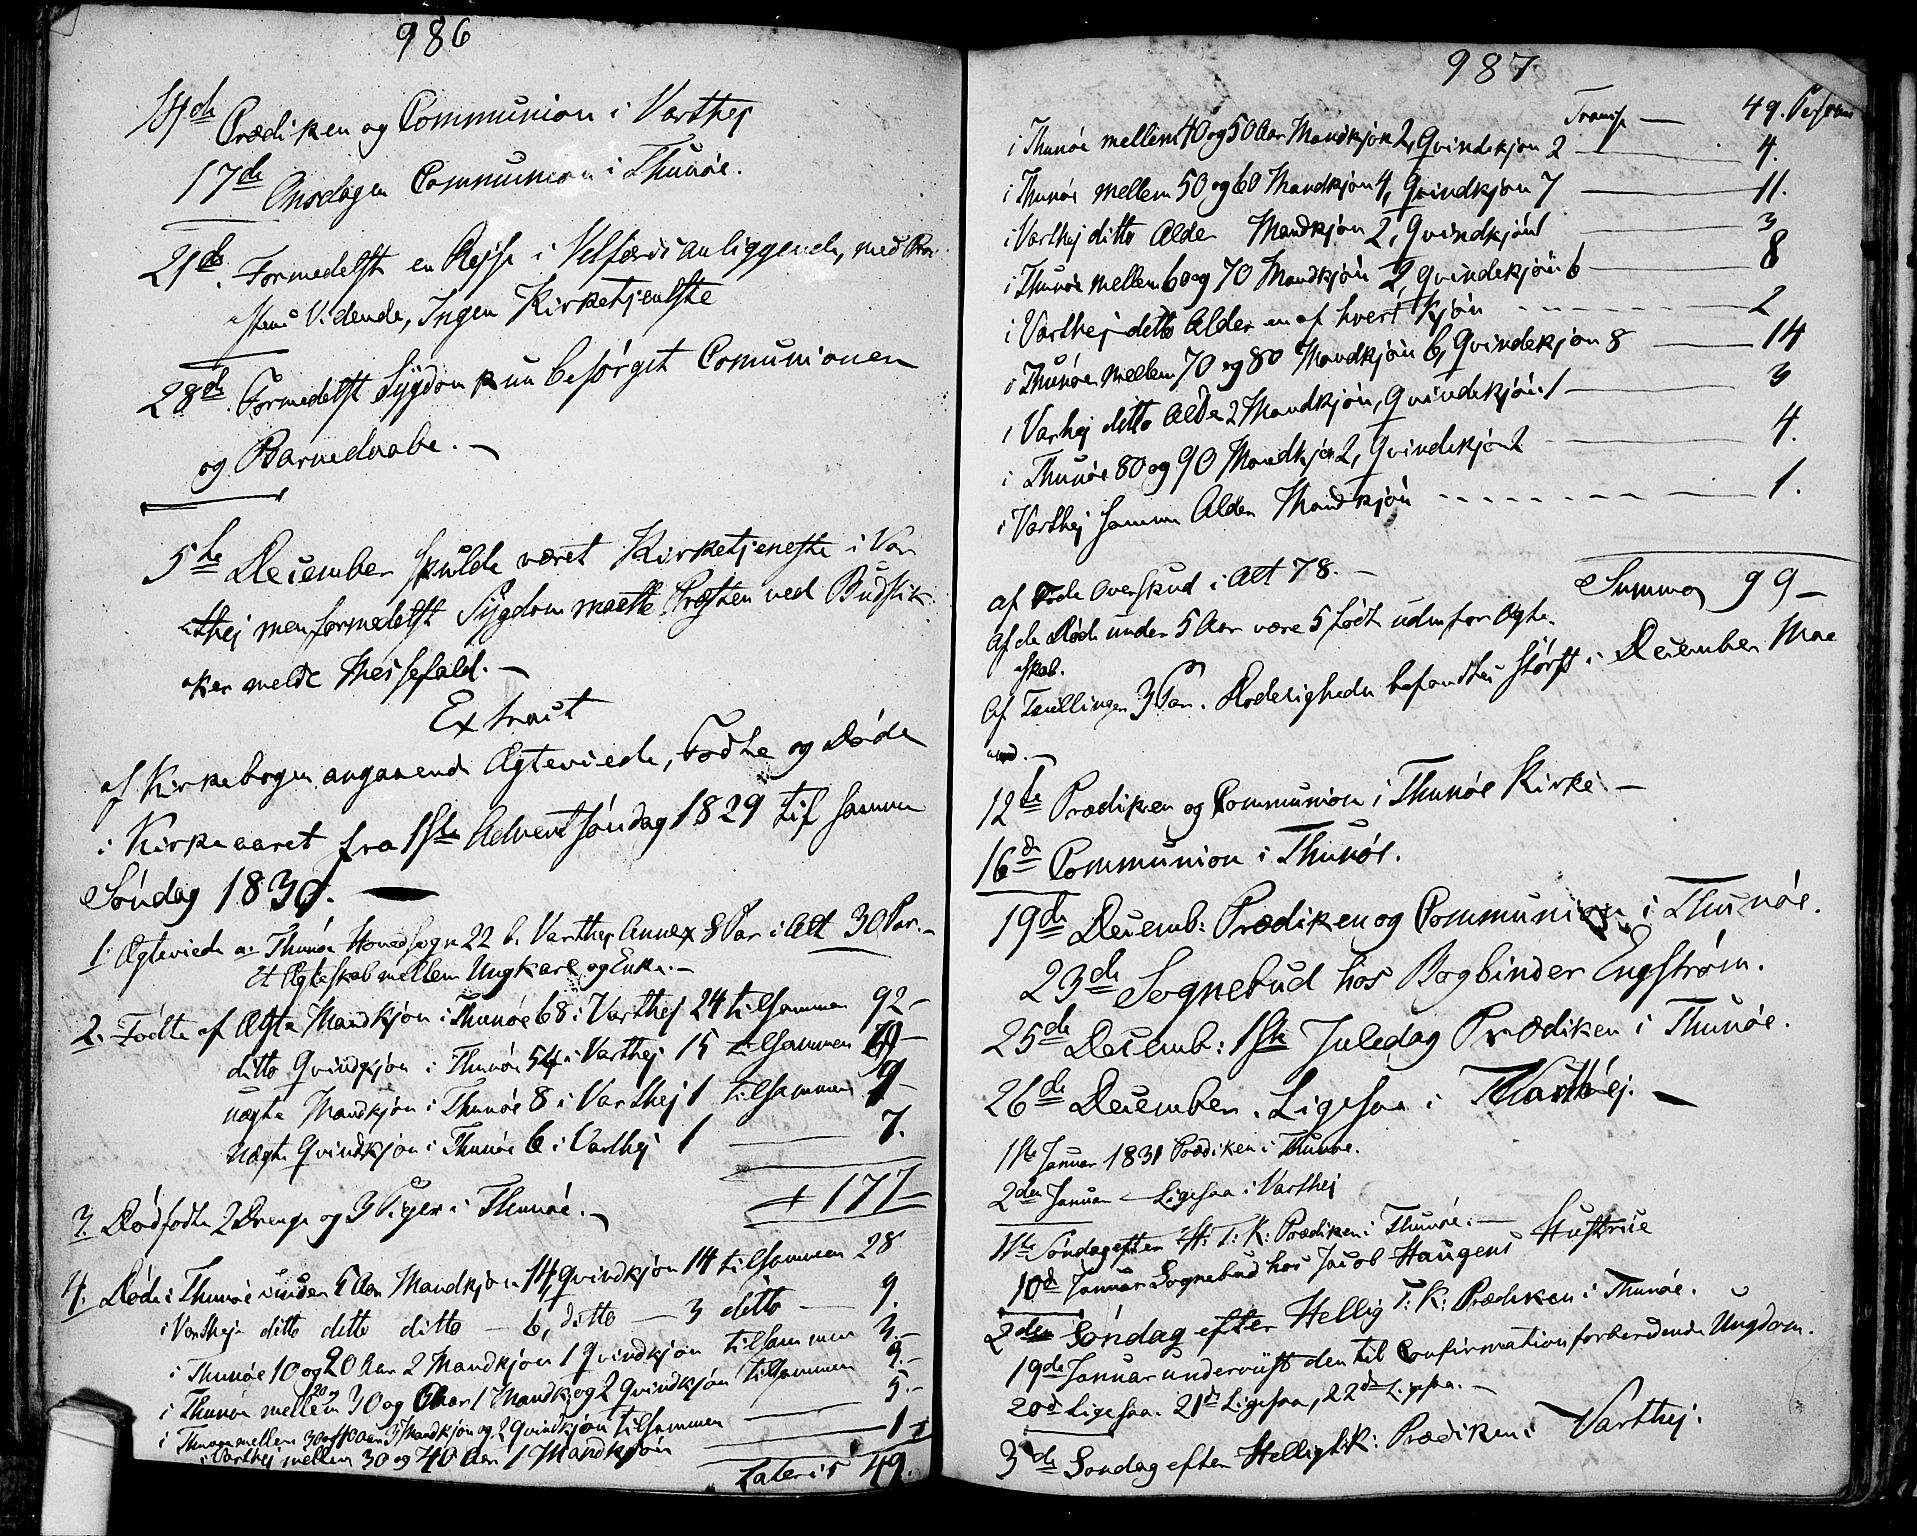 986
14de Prædiken og Communion i Varthej
17de Onsdagen Communion i Thunöe.
21de. Formedelst en Rejse i Velfærds anliggende, med Prov
stens Vidende, Ingen Kirketjenste
28de. Formedelst Sÿgdom kun besörget Comunionen
og Barnedaabe. —
5te December skulde været Kirketjeneste i Var
thej men formedelst Sÿgdom maatte Præsten ved Budstik
ken melde Messefald. —
Extract
af Kirkebogen angaaende Ægteviede, Födte og Döde
i Kirkeaaret fra 1ste Advent söndag 1829 til samme
Söndag 1830. —
1. Ægteviede a. Thunöe Hovedsogn 22 b. Varthej Annex 8 Par i Alt 30 Par. —
Et Ægteskab mellem Ungkarl og Enke. —
2. Födte af Ægte Mandkjön i Thunöe 68 i Varthej 24 tilsammen 92 —
ditto Qvindkjön i Thunöe 54 i Varthej 15 tilsammen 69 —
uægte Mandkjön i Thunöe 8 i Varthej 1 tilsammen 9 —
uægte Qvindkjön i Thunöe 6 i Varthej 1 — 7.
177 —
3. Dödfödte 2 Drenge og 3 Piger i Thunöe. —
4. Döde i Thunöe under 5 Aar Mandkjön 14, qvindkjön 14 tilsammen 28
i Varthej ditto ditto ditto — 6, ditto — 3 ditto — 9.
i Thunöe 10 og 20 Aar 2 Mandkjön 1 Qvindkjön tilsammen 3. —
i Thunöe mellem 20 og 30 Aar 1 Mandk: og 2 Qvindkjön tilsammen 3. —
i Thunöe mellem 30 og 40 Aar 3 Mandkjön og 2 Qvindkjön tilsammen 5. —
i Varthej mellem 30 og 40 Aar 1 Mandkjön — 1
Lateris 49.
987
Transp — 49. Person
i Thunöe mellem 40 og 50 Aar Mandkjön 2, Qvindekjön 2 — 4.
i Thunöe mellem 50 og 60 Mandkjön 4, Qvindkjön 7 — 11.
i Varthej ditto Alder Mandkjön 2, Qvindkjön 1 — 3
i Thunöe mellem 60 og 70 Mandkjön 2, Qvindekjön 6 — 8
i Varthej ditto Alder en af hvert Kjön - - - - 2
i Thunöe mellem 70 og 80 Mandkjön 6, Qvindekjön 8 — 14
i Varhej ditto Alder 2 Mandkjön, Qvindekjön 1 — 3
i Thunöe 80 og 90 Mandkjön 2, Qvindekjön 2 — 4.
i Varthej samme Alder Mandkjön - - - - — 1.
Summa 99 —
af Föde Overskud i Alt 78. —
Af de Döde under 5 Aar vare 5 födt udenfor Ægte
skab.
Af Tvillinger 3 Par. Dödeligheden befandtes störst i December Maa
ned. —
12te Prædiken og Communion i Thunöe Kirke. —
16de Communion i Thunöe.
19de Decemb: Prædiken og Communion i Thunöe.
23de Sognebud hos Bogbinder Engström.
25de Decemb: 1ste Juledag Prædiken i Thunöe.
26de December. Ligesaa i Varthej. —
1ste Januar 1831 Prædiken i Thunöe.
2den Januar — Ligesaa i Varthej
1ste Söndag efter H: T: K: Prædiken i Thunöe. —
10de Januar Sognebud hos Jacob Haugens Hustrue
2den Söndag efter Hellig T: K: Prædiken i Thunöe.
19de Januar underviist den til Confirmation forberedende Ungdom.
20de Ligesaa. 21de Ligesaa, 22de Ligesaa. —
3de Söndag efter Hellig t. K: Prædiken i Varthej.